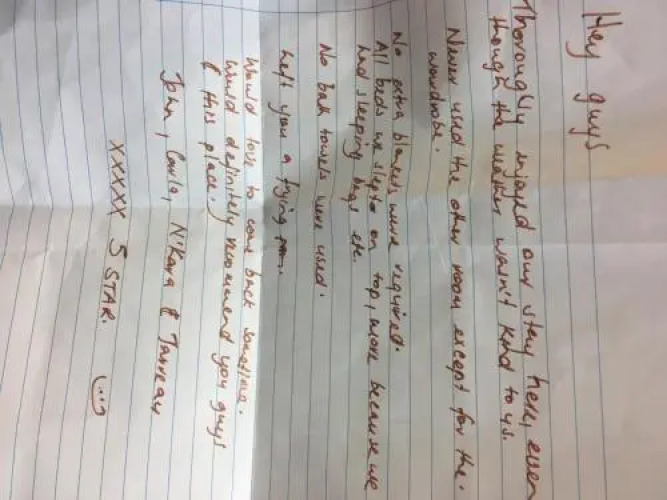 Hey guys
Thoroughly enjoyed our stay here, even
though the weather wasn't kind to us.
Never used the other room except for the
wardrobe.
No extra blankets were required.
All beds we slept on top, more because we
had sleeping bags etc.
No bath towels were used.
Left you a frying pan.
Would love to come back sometime.
Would definitely recommend you guys
& this place.
John, Carla, N'Kaya &
XXXXX 5 STAR.